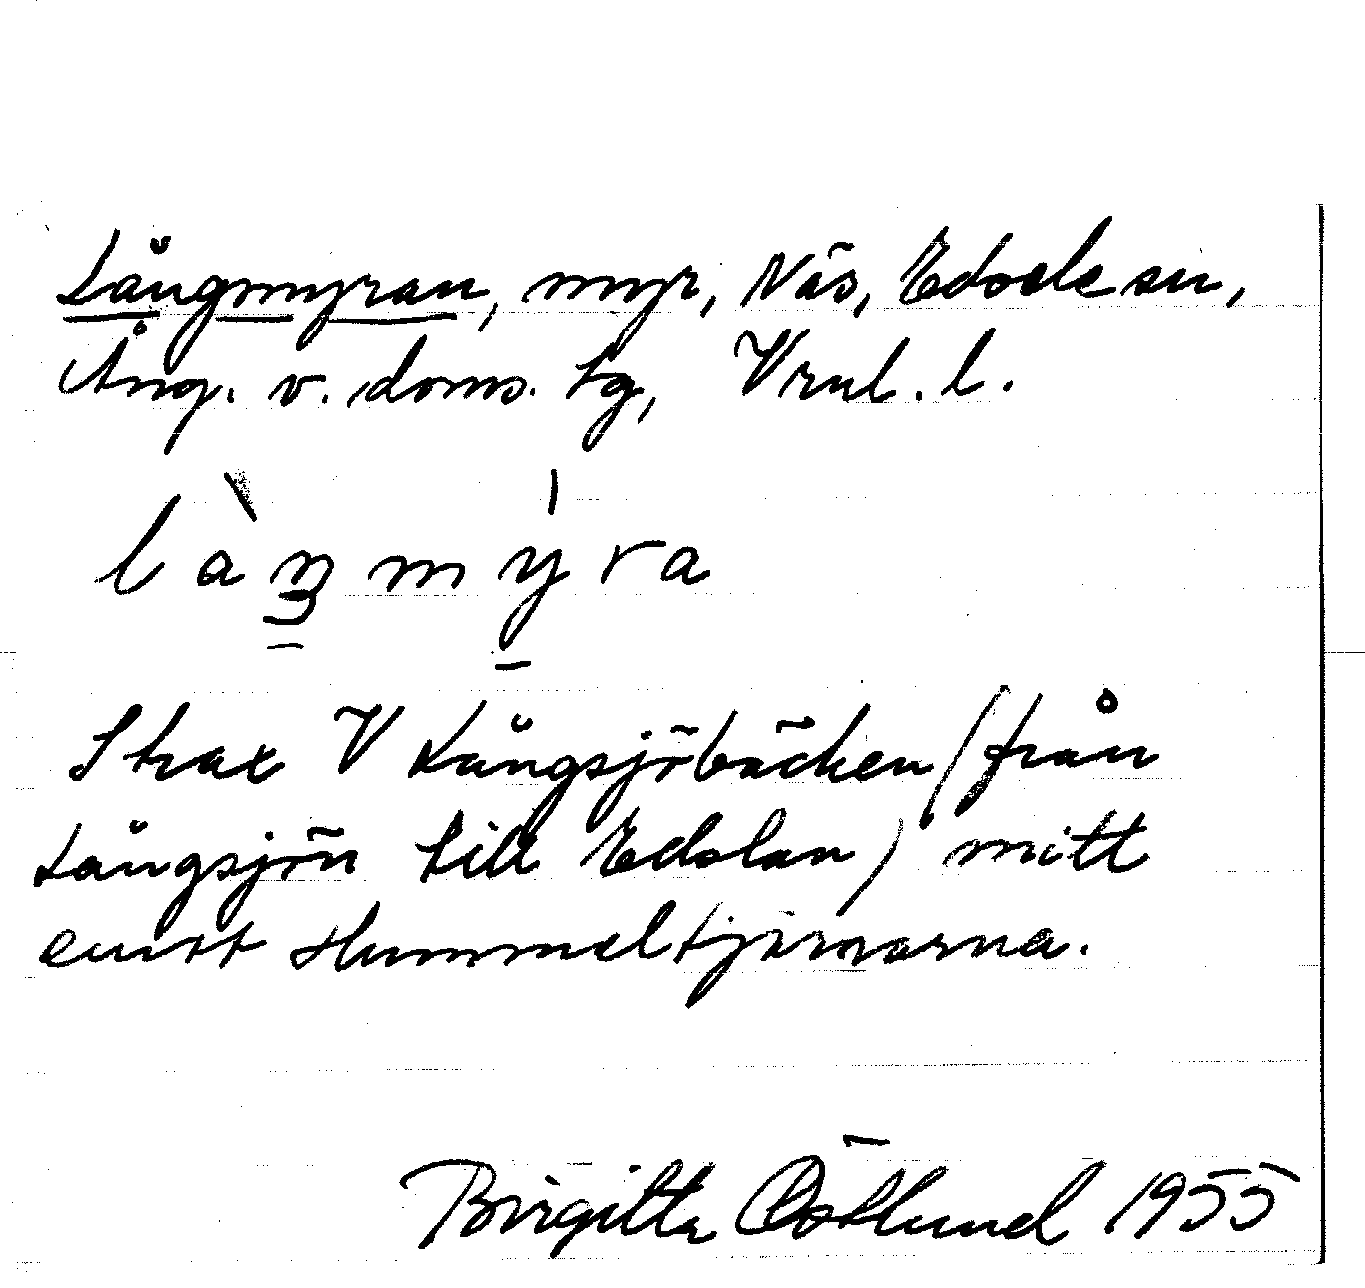 Långmyran, myr, Näs, Edsele sn,
Ång. v. doms. tg, Vrnl. l.
làŋmy̍ra
Strax V Långsjöbäcken (från
Långsjön till Edslan) mitt
emot Hummeltjärnarna.
Birgitta Östlund 1955